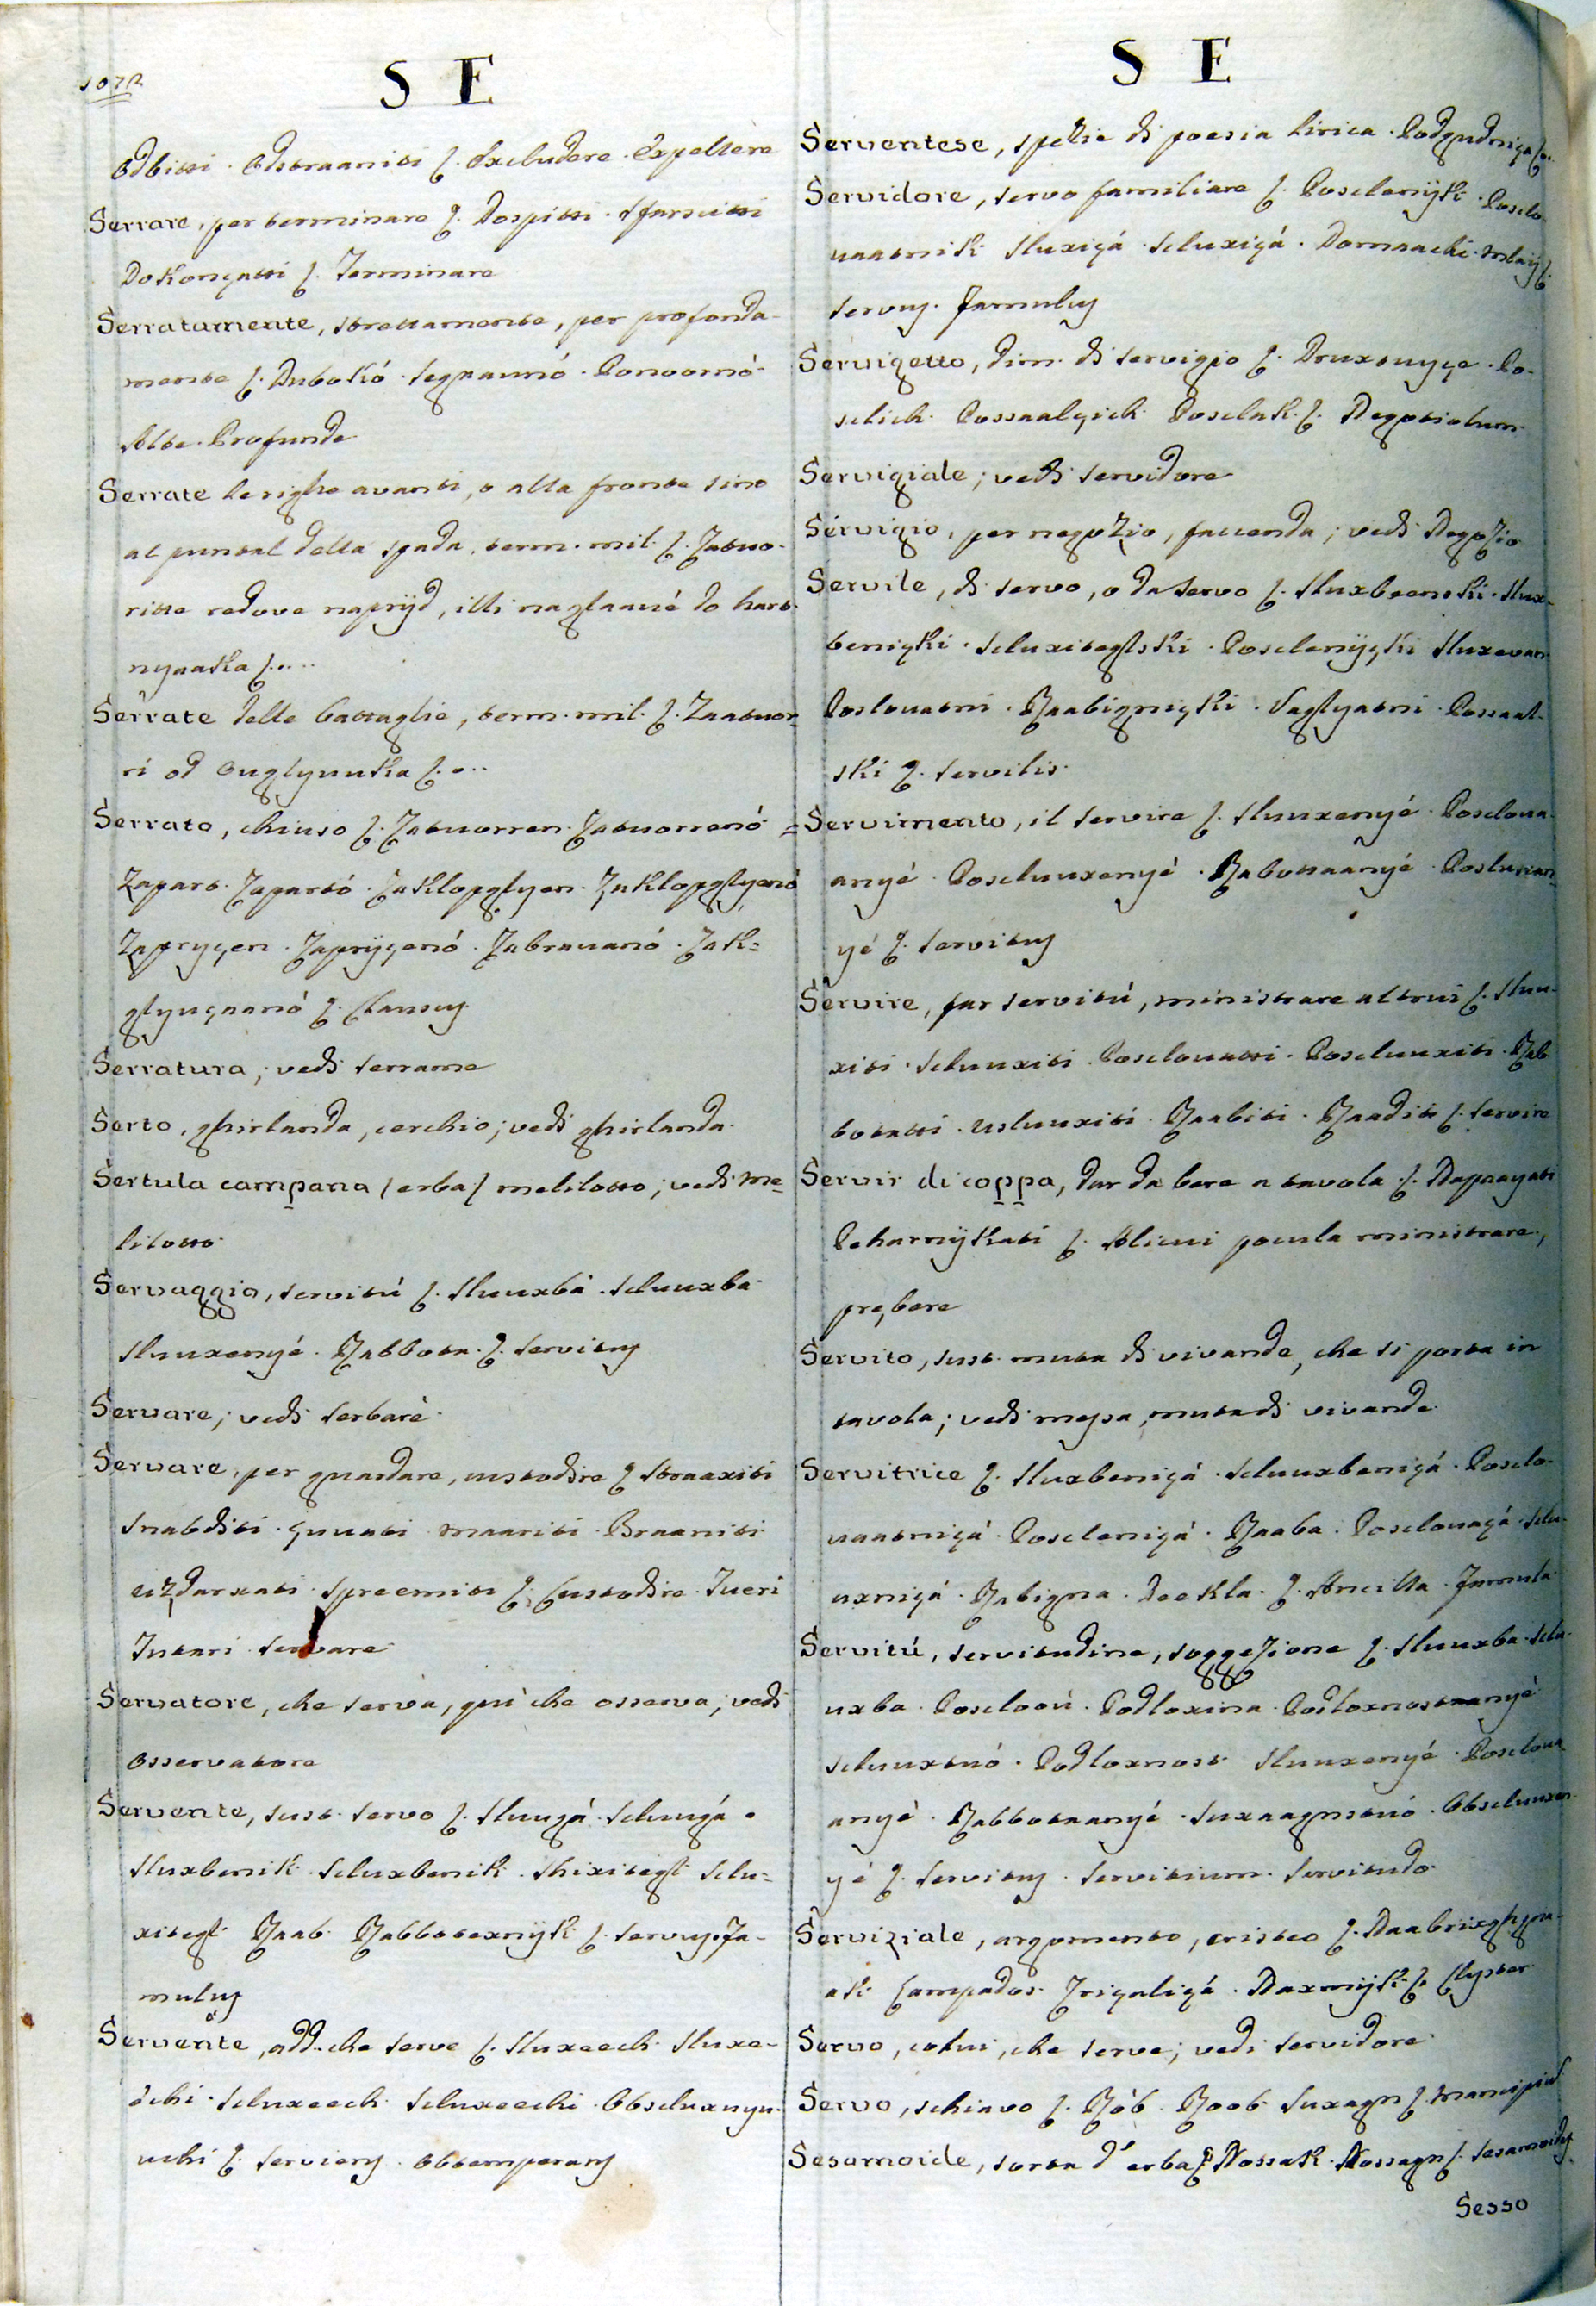 1072
S E
Odbitti. Odstraaniti ſ. Excludere. Expellere
Serrare, per terminare ſ. Dospitti. Sfarscitti
Dokonçatti ſ. Terminare
Serratamente, strettamente, per profonda-
mente ſ. Dubokó. Ponoornó.
Alte. Profunde
Serrate le righe avanti, o alla fronte sino
al puntal della spada, term. mil. ſ. Zatuo-
ritte redove naprijd, illi naglaavé do hart-
nyaaka ſ....
Serrate delle battaglie, term. mil. ſ. Zaatuor-
ri od ſ...
Serrato, chiuso ſ. Zatuorren. Zatuorrenó.
Zapart. Zapartó. Zaklopglyen. Zaklopglyenó
Zapryçen. Zaprijçenó. Zabravanó. Zak=
glyuçaanó ſ. Clausus
Serratura, vedi serrame
Serto, ghirlanda, cerchio; vedi ghirlanda.
Sertula campana (erba) melilotto; vedi me-
lilotto.
Servaggio, servitú ſ. Sluuxba. Scluuxba
Sluuxenyé. Rabbota. ſ. Servitus
Servare; vedi serbare.
Servare, per guardare, custodire ſ. Straaxiti
Snabditi. Çuuati. Maariti. Braaniti
uzdarxati. Spreemiti ſ. Custodire. Tueri
Tutari. Servare
Servatore, che serva, qui che osserva; vedi
osservatore
Servente, sust. servo ſ. Sluugá. Scluugá.
Sluxbenik. Scluxbenik. Sluxitegl. Sclu=
xitegl. Raab. Rabbotexnijk ſ. Servus. Fa-
mulus
Servente, add. che serve ſ. Sluxeech. Sluxe-
echi. Scluxeech. Scluxeechi. Obscluxuyu-
uchi ſ. Serviens. Obtemperans
S E
Serventese, spezie di poesia lirica.
Servidore, servo familiare ſ. Posclenijk. Posclo-
uaatnik. Sluxiçá. Scluxiçá. Domaachi. Mlaij ſ.
Servus. Famulus
Servigetto, dim. di servigio ſ. Druxtuyçe. Po-
sclich. Possaalçich. Posclak. ſ. Negotiolum
Servigiale; vedi servidore
Servigio, per negozio, faccenda; vedi Negozio
Servile, di servo, o da servo ſ. Sluxbeenski. Slux-
beniçki. Scluxiteglski. Posclenijçki. Sluxevan.
Poslouatni. Raabigniçki. Possaal-
ski ſ. Servilis.
Servimento, il servire ſ. Sluuxenyé. Posclova-
anyé. Poscluuxenyé. Rabottaanyé. Posluxan-
yé ſ. Servitus
Servire, far servitú, ministrare altrui ſ. Sluu-
xiti. Scluuxiti. Posclouatti. Poscluuxiti. Rab-
botatti. Usluuxiti. Raabiti. Raaditi ſ. Servire
Servir di coppa, dar da bere a tavola ſ. Napaayati
Peharnijkati ſ. Alicui pocula ministrare,
prębere
Servito, sust. muta di vivande, che si porta in
tavola; vedi messa, muta di vivande.
Servitrice ſ. Sluxbeniçá. Scluuxbeniçá. Posclo-
uaatniçá. Poscleniçá. Raaba. Posclouaçá. Sclu-
uxniçá. Rabigna. Deekla. ſ. Ancilla. Famula
Servitú, servitudine, soggezione ſ. Sluuxba. Sclu-
uxba. Podloxina.
Scluuxtuó. Podloxnost. Sluuxenyé. Posclova-
anyé. Rabbotaanyé. Suxaagnstuó. Obscluuxen-
yé ſ. Servitus. Servitium. Servitudo.
Serviziale, argomento, cristeo ſ.
Naxmijk ſ. Clyster
Servo, colui, che serve; vedi servidore
Servo, schiavo ſ. Rób. Roob. Suxagn ſ. Mancipiũ
Sesamoide, sorta d'erba ſ. Nossak. Nossagn ſ. Sesamoides
Sesso